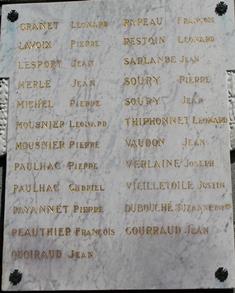 GRANET LEONARD
LAVOIX PIERRE
LESPORT JEAN
MERLE JEAN
MICHEL PIERRE
MOUSNIER LEONARD
MOUSNIER PIERRE
PAULHAC PIERRE
PAULHAC GABRIEL
PAYANNET PIERRE
PEAUTHIER FRANÇOIS
QUOIRAUD JEAN
RAPEAU FRANÇOIS
RESTOIN LEONARD
SARLANDE JEAN
SOURY PIERRE
SOURY JEAN
THIPHONNET LEONARD
VAUDON JEAN
VERLAINE JOSEPH
VIEILLETOILE JUSTIN
DUBOUCHÉ SUZANNE
GOURRAUD JEAN